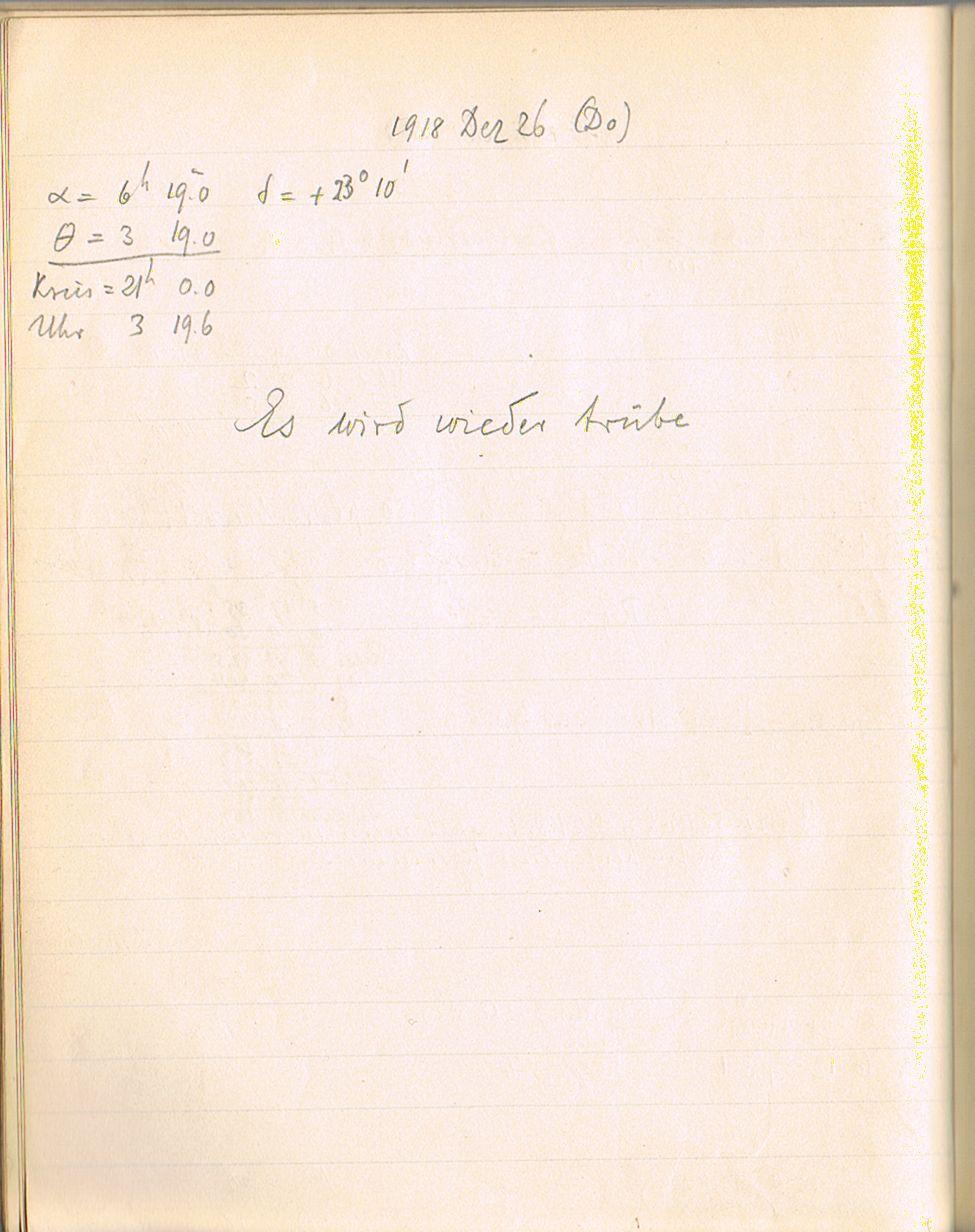 1918 Dez 26 (Do)
α = 6ʰ 19ᵐ.0 δ = +23° 10'
θ = 3 19.0
Kreis = 21ʰ 0.0
Uhr 3 19.6
Es wird wieder trübe